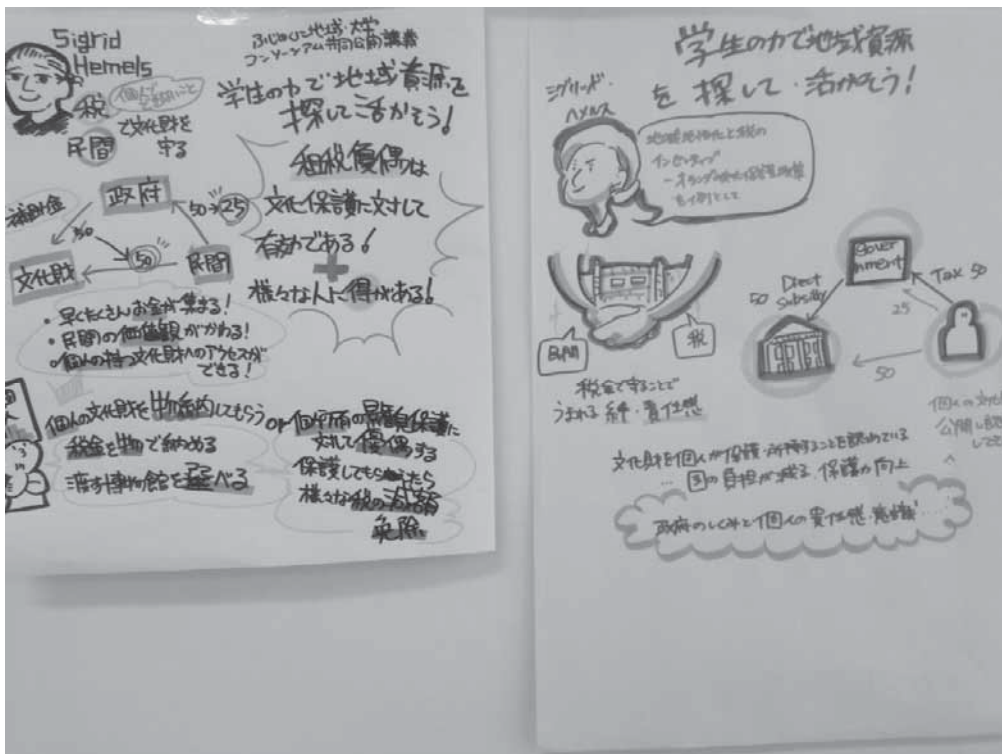 Sigrid
Hemels
ふじのくに地域・大学
コンソーシアム共同公開講義
学生の力で地域資源を
探して活かそう!
税
民間で文化財を
守る
租税優偶は
文化保護に対して
有効である!
+
様々な人に得がある!
補助金
政府
50→25
50
50
文化財
民間
・早くたくさんお金が集まる!
・民間の価値観がかわる!
・個人の持つ文化財へのアクセスが
できる!
個人の文化財を物納してもらう
税金を物で納める
渡す博物館を選べる
or 個所有の
対して優偶する
保護してもらえたら
様々な税の減額
免除
学生の力で地域資源
を探して・活かそう!
シグリッド・
ヘメルス
インセンティブ
民間
税
税金で守ることで
うまれる絆・責任感
gover
nment
Direct
Subsidy
50
Tax 50
25
50
個人の文化
公開し
文化財を個人が保護・所持することを認めている
… 国の負担が減る・保護が向上
政府のしくみと個人の責任感・意識…